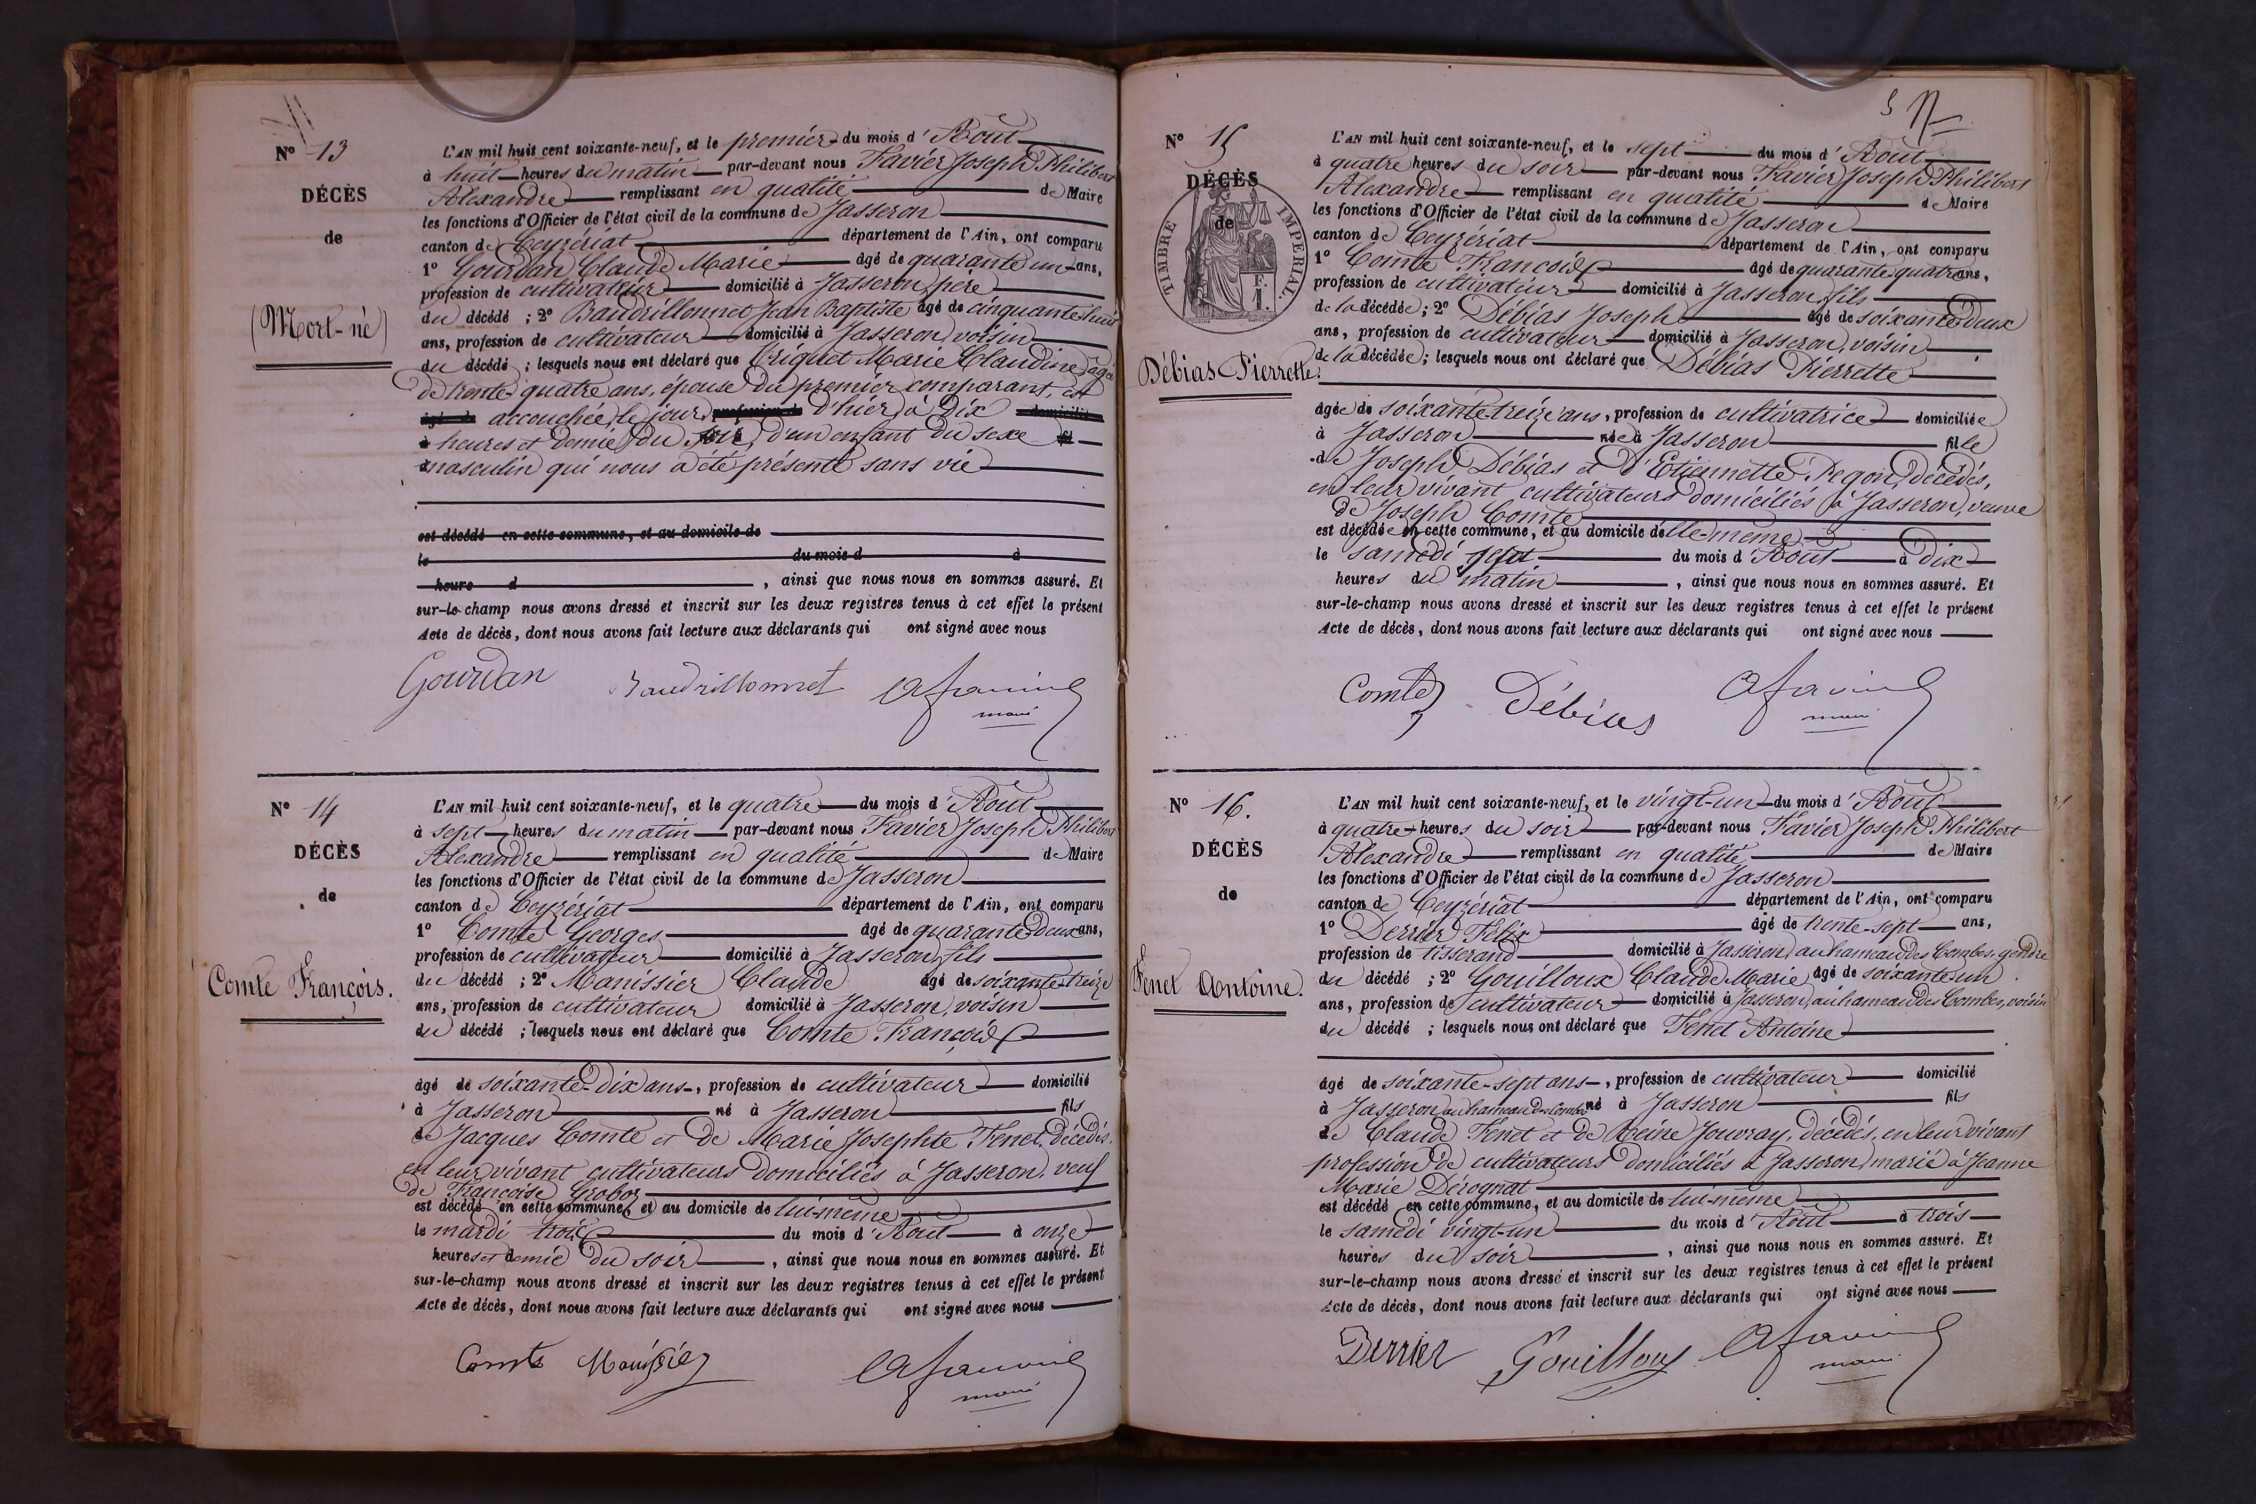 N° 13
DÉCÈS
de
(Mort-né)
L'AN mil huit cent soixante-neuf, et le premier du mois d'Août
à huit heures du matin par-devant nous Favier Joseph Philibert
Alexandre remplissant en qualité de Maire
les fonctions d'Officier de l'état civil de la commune de Jasseron
canton de Ceyzériat département de l'Ain, ont comparu
1° Gourdan Claude Marie âgé de quarante un ans,
profession de cultivateur domicilié à Jasseron, père
du décédé ; 2° Baudrillonnet Jean Baptiste âgé de cinquante-huit
ans, profession de cultivateur domicilié à Jasseron, voisin
du décédé ; lesquels nous ont déclaré que Criquet Marie Claudine âgée
de trente-quatre ans, épouse du premier comparant, est
âgé de accouchée, le jour profession de d'hier, à dix domicilié
à heures et demie du soir, d'un enfant du sexe fil
masculin qui nous a été présenté sans vie
est décédé en cette commune, et au domicile de
le du mois d à
heure d , ainsi que nous nous en sommes assuré. Et
sur-le-champ nous avons dressé et inscrit sur les deux registres tenus à cet effet le présent
Acte de décès, dont nous avons fait lecture aux déclarants qui ont signé avec nous
Gourdan Baudrillonnet Afavier
maire
N° 14
DÉCÈS
de
Comte François.
L'AN mil huit cent soixante-neuf, et le quatre du mois d'Août
à sept heures du matin par-devant nous Favier Joseph Philibert
Alexandre remplissant en qualité de Maire
les fonctions d'Officier de l'état civil de la commune de Jasseron
canton de Ceyzériat département de l'Ain, ont comparu
1° Comte Georges âgé de quarante-deux ans,
profession de cultivateur domicilié à Jasseron, fils
du décédé ; 2° Manissier Claude âgé de soixante-treize
ans, profession de cultivateur domicilié à Jasseron, voisin
du décédé ; lesquels nous ont déclaré que Comte François
âgé de soixante-dix ans, profession de cultivateur domicilié
à Jasseron né à Jasseron fils
de Jacques Comte et de Marie Josephte Fenet, décédés,
en leur vivant cultivateurs domiciliés à Jasseron, veuf
de Françoise Groboz
est décédé en cette commune, et au domicile de lui-même
le mardi trois du mois d'Août à onze
heures et demie du soir , ainsi que nous nous en sommes assuré. Et
sur-le-champ nous avons dressé et inscrit sur les deux registres tenus à cet effet le présent
Acte de décès, dont nous avons fait lecture aux déclarants qui ont signé avec nous
Comte Manissier Afavier
maire
N° 15
DÉCÈS
de
TIMBRE IMPÉRIAL.
F. 1.
Débias Pierrette.
L'AN mil huit cent soixante-neuf, et le sept du mois d'Août
à quatre heures du soir par-devant nous Favier Joseph Philibert
Alexandre remplissant en qualité de Maire
les fonctions d'Officier de l'état civil de la commune de Jasseron
canton de Ceyzériat département de l'Ain, ont comparu
1° Comte François âgé de quarante quatre ans,
profession de cultivateur domicilié à Jasseron, fils
de la décédée ; 2° Débias Joseph âgé de soixante-deux
ans, profession de cultivateur domicilié à Jasseron, voisin
de la décédée ; lesquels nous ont déclaré que Débias Pierrette
âgée de soixante-treize ans, profession de cultivatrice domiciliée
à Jasseron née à Jasseron fille
de Joseph Débias et d'Etiennette Pegon, décédés,
en leur vivant cultivateurs domiciliés à Jasseron, veuve
de Joseph Comte
est décédée en cette commune, et au domicile d'elle-même
le samedi sept du mois d'Août à dix
heures du matin , ainsi que nous nous en sommes assuré. Et
sur-le-champ nous avons dressé et inscrit sur les deux registres tenus à cet effet le présent
Acte de décès, dont nous avons fait lecture aux déclarants qui ont signé avec nous
Comte Débias Afavier
maire
N° 16.
DÉCÈS
de
Fenet Antoine.
L'AN mil huit cent soixante-neuf, et le vingt-un du mois d'Août
à quatre heures du soir par-devant nous Favier Joseph Philibert
Alexandre remplissant en qualité de Maire
les fonctions d'Officier de l'état civil de la commune de Jasseron
canton de Ceyzériat département de l'Ain, ont comparu
1° Derrier Félix âgé de trente-sept ans,
profession de tisserand domicilié à Jasseron, au hameau des Combes, gendre
du décédé ; 2° Gouilloux Claude Marie âgé de soixante-un
ans, profession de cultivateur domicilié à Jasseron, au hameau des Combes, voisin
du décédé ; lesquels nous ont déclaré que Fenet Antoine
âgé de soixante-sept ans, profession de cultivateur domicilié
à Jasseron au hameau des Combes né à Jasseron fils
de Claude Fenet et de Reine Jouvray, décédés, en leur vivant
profession de cultivateurs domiciliés à Jasseron, marié à Jeanne
Marie Dérognat
est décédé en cette commune, et au domicile de lui-même
le samedi vingt-un du mois d'Août à trois
heures du soir , ainsi que nous nous en sommes assuré. Et
sur-le-champ nous avons dressé et inscrit sur les deux registres tenus à cet effet le présent
Acte de décès, dont nous avons fait lecture aux déclarants qui ont signé avec nous
Derrier Gouilloux Afavier
maire